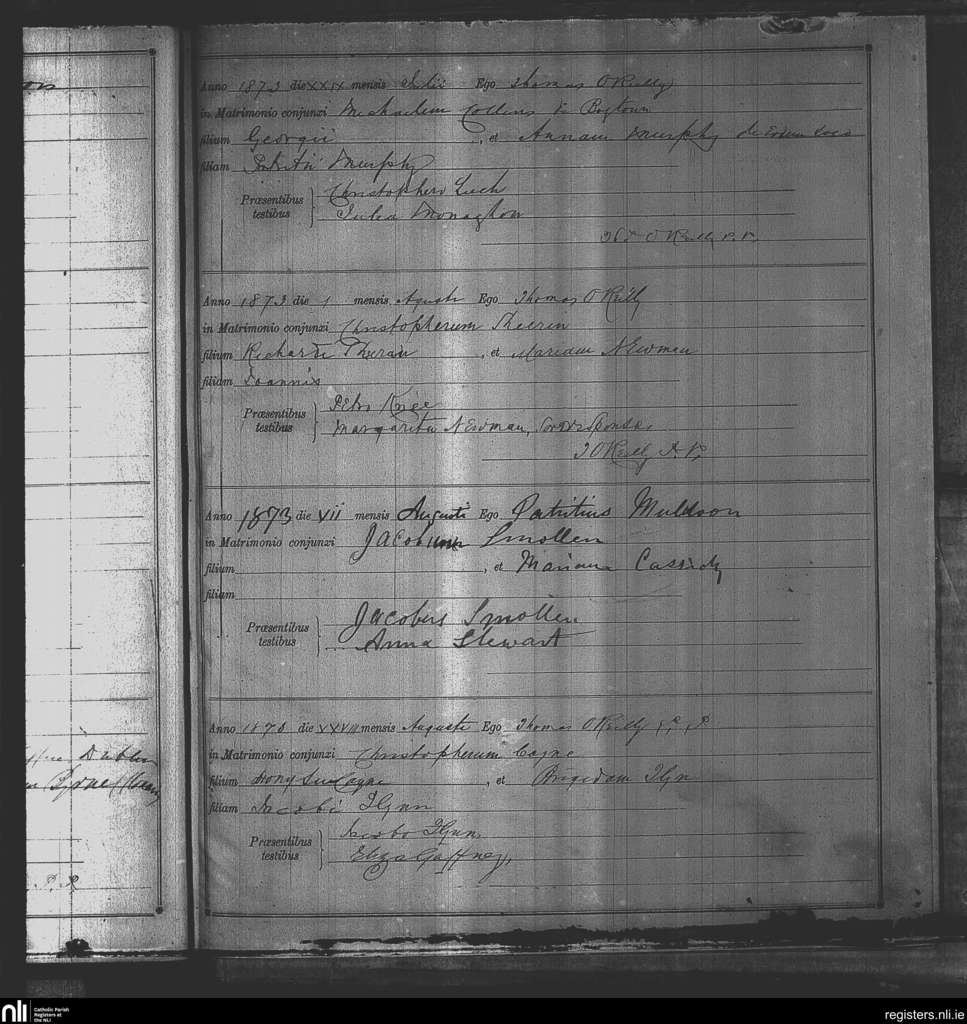 Anno 1873 die XXIX mensis Julii Ego Thomas O'Reilly
in Matrimonio conjunxi Michaelem Collins
filium Georgii , et Annam Murphy de eodem loco
filiam Patritii Murphy
Præsentibus testibus } Christophero
Julia Monaghan
O'Reilly P.P.
Anno 1873 die 1 mensis Agusti Ego Thomas O'Reilly
in Matrimonio conjunxi Christopherum Sheerin
filium Richardi , et Mariam Newman
filiam Joannis
Præsentibus testibus } Petro
Margarita Newman,
T O'Reilly P.P.
Anno 1873 die XII mensis Augusti Ego Patritius Muldoon
in Matrimonio conjunxi Jacobum Smollen
filium , et Mariana Cassidy
filiam
Præsentibus testibus } Jacobus Smollen
Anna Stewart
Anno 1873 die XXVIII mensis Augusti Ego Thomas O'Reilly P.P.
in Matrimonio conjunxi Christopherum Coyne
filium , et Brigidam Flyn
filiam Jacobi Flynn
Præsentibus testibus } Jacobo Flynn,
Eliza Gaffney,
Dublin
Byrne
P. P.
nli Catholic Parish Registers at the NLI
registers.nli.ie